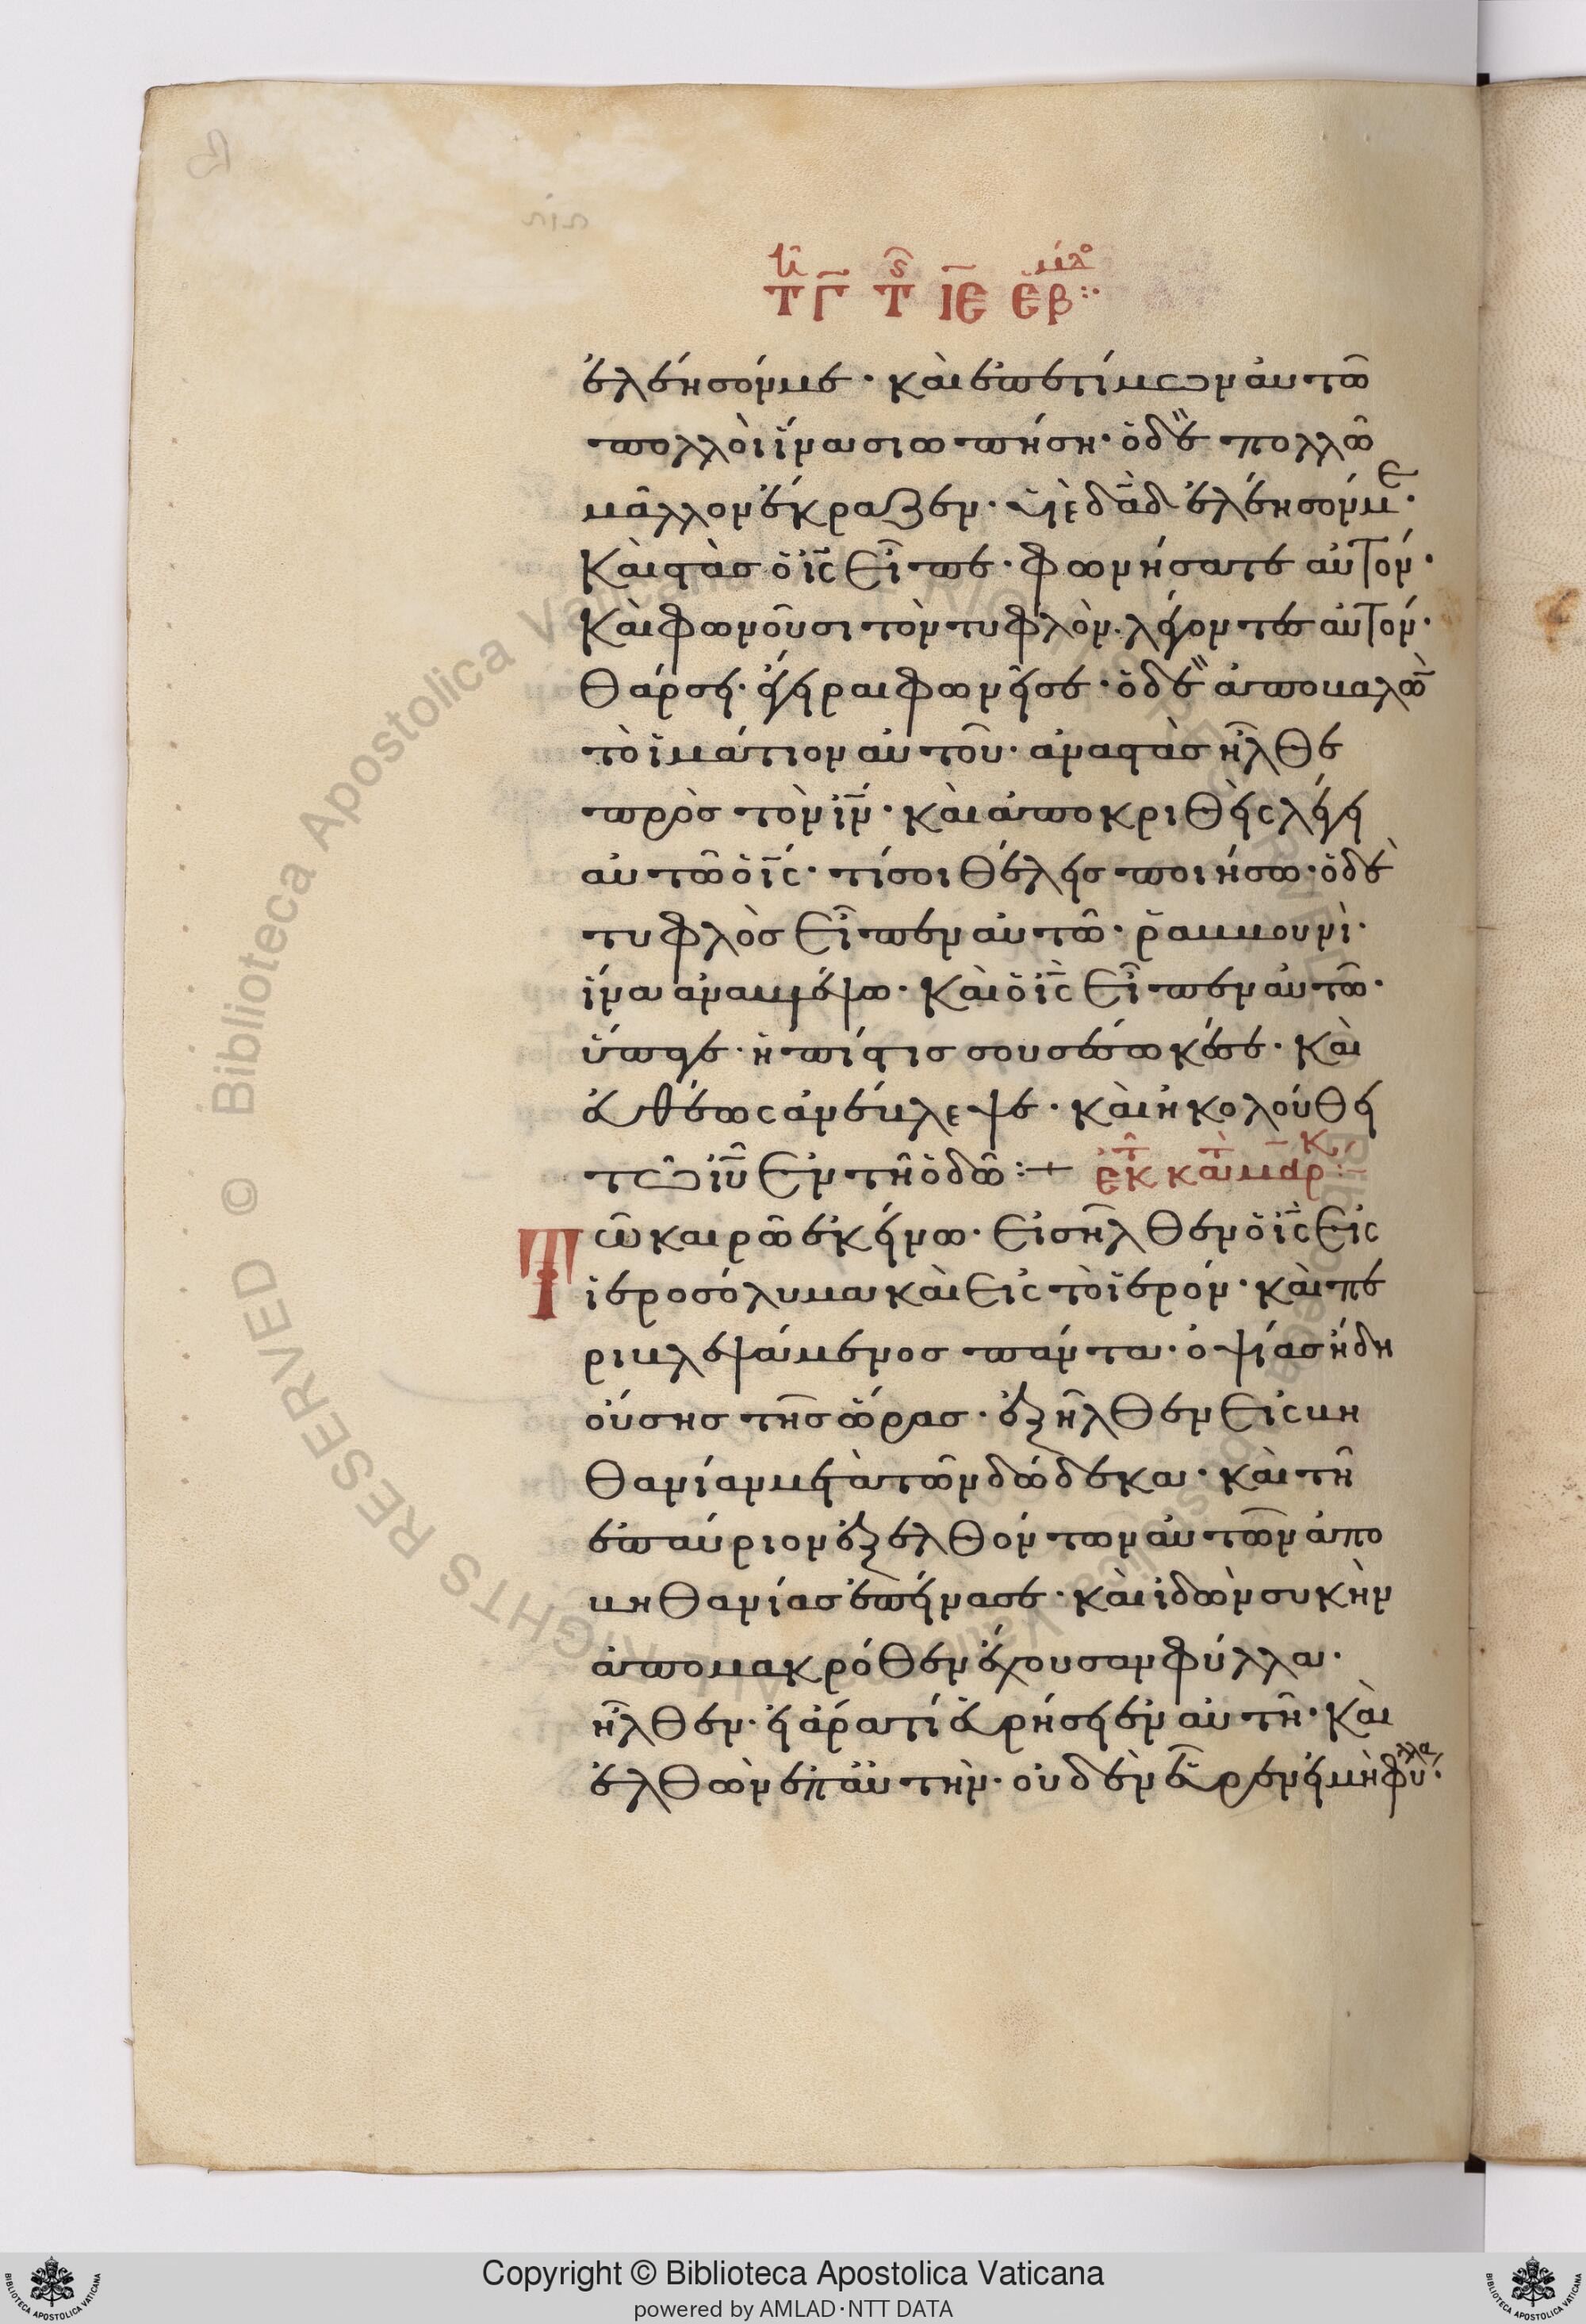 Τῇ Γ τῆς ΙΕ ἑβδ
ἐλέησόν με · καὶ ἐπετίμων αὐτῶ
πολλοὶ ἵνα σιωπήση · ὁ δὲ πολλῶ
μᾶλλον ἔκραζεν · υἱὲ δᾱδ ἐλέησόν με ·
Καὶ στὰς ὁ ις̄ εἶπε · φωνήσατε αὐτόν ·
Καὶ φωνοῦσι τὸν τυφλὸν · λέγοντες αὐτόν ·
Θάρσει · ἔγειραι φωνεῖ σε · ὁ δὲ ἀποβαλὼν
τὸ ἱμάτιον αὐτοῦ · ἀναστὰς ἦλθε
πρὸς τὸν ιν̄ · καὶ ἀποκριθεὶς λέγει
αὐτῶ ὁ ις̄ · τί σοι θέλεις ποιήσω · ὁ δὲ
τυφλὸς εἶπεν αὐτῶ · ῥαββουνὶ ·
ἵνα ἀναβλέψω · Καὶ ὁ ις̄ εἶπεν αὐτῶ ·
ὕπαγε · ἡ πίστις σου σέσωκέ σε · Καὶ
εὐθέως ἀνέβλεψε · καὶ ἠκολούθει
τῶ ιῡ ἐν τῆ ὁδῶ :+ ἐκ τ κατ μάρκ
Τῶ καιρῶ ἐκείνω · εἰσῆλθεν ὁ ις̄ εἰς
ἱεροσόλυμα καὶ εἰς τὸ ἱερόν · καὶ πε
ριβλεψάμενος πάντα · ὀψίας ἤδη
οὔσης τῆς ὥρας · ἐξῆλθεν εἰς βη
θανίαν μετὰ τῶν δώδεκα · καὶ τῆ
ἐπαύριον ἐξελθόντων αὐτῶν ἀπὸ
βηθανίας ἐπείνασε · καὶ ἰδὼν συκὴν
ἀπομακρόθεν ἔχουσαν φύλλα ·
ἦλθεν · εἰ ἄρα τί εὑρήσει ἐν αὐτῆ · Καὶ
ἐλθὼν ἐπ αὐτὴν · οὐδὲν εὗρεν εἰ μὴ φύλλα ·
Biblioteca Apostolica Vaticana
RIGHTS RESERVED ©
Copyright © Biblioteca Apostolica Vaticana
powered by AMLAD·NTT DATA